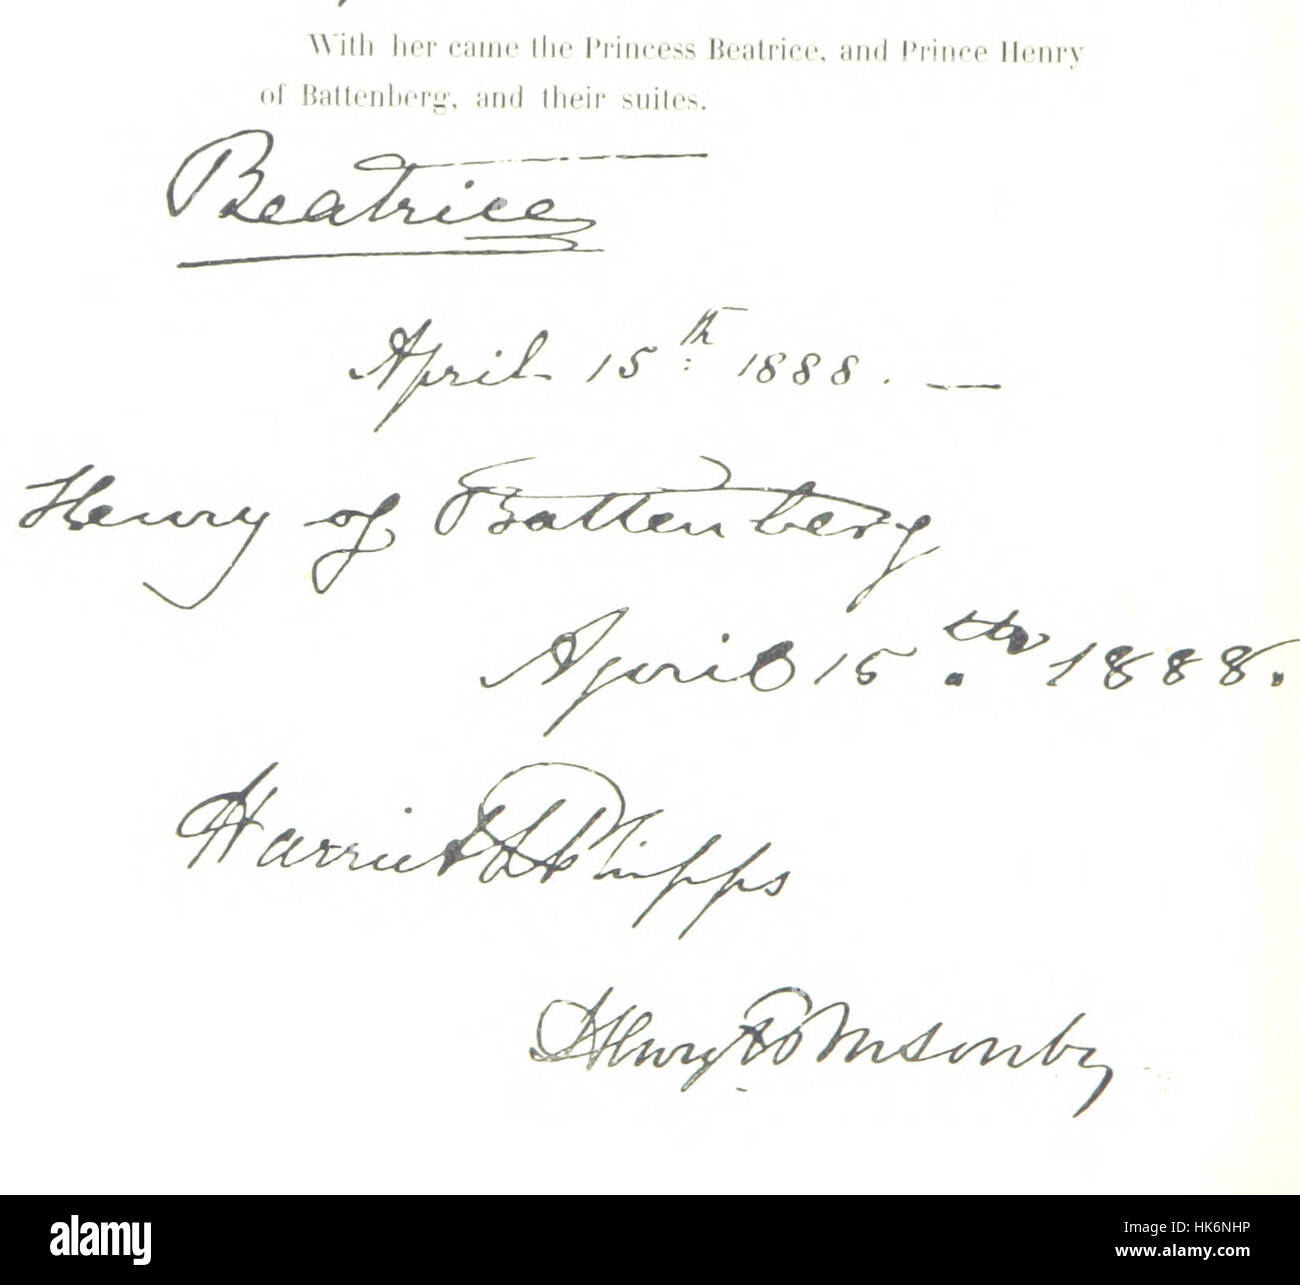 With her came the Princess Beatrice, and Prince Henry
of Battenberg, and their suites.
Beatrice
April 15th 1888. —
Henry of Battenberg
April 15.th 1888.
Harriet L Phipps
Henry F Ponsonby
alamy
Image ID: HK6NHP
www.alamy.com